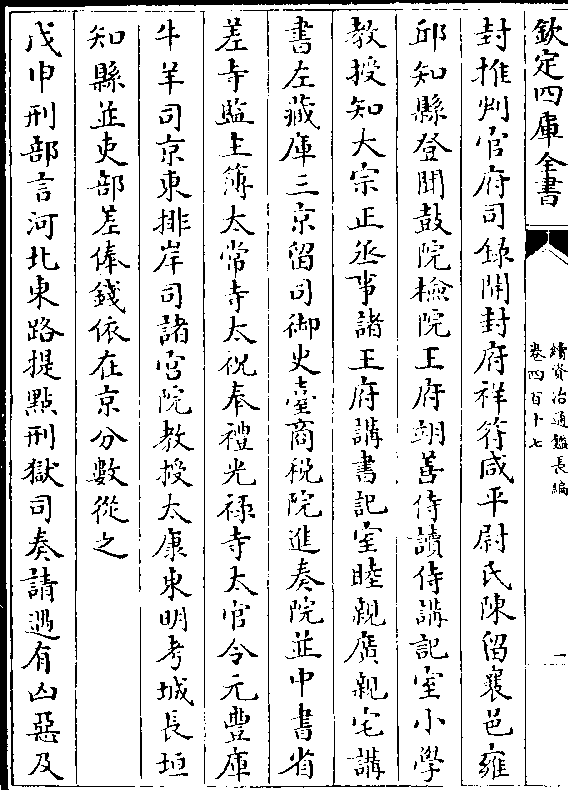 欽定四庫全書
續資治通鑑長編
卷四百十七
一
封推判官府司錄開封府祥符咸平尉氏陳留襄邑雍
邱知縣登聞鼓院檢院王府翊善侍讀侍講記室小學
教授知大宗正丞事諸王府講書記室睦親廣親宅講
書左藏庫三京留司御史臺商稅院進奏院並中書省
差寺監主簿太常寺太祝奉禮光祿寺太官令元豐庫
牛羊司京東排岸司諸宫院教授太康東明考城長垣
知縣並吏部差俸錢依在京分數從之
戊申刑部言河北東路提點刑獄司奏請遇有凶惡及